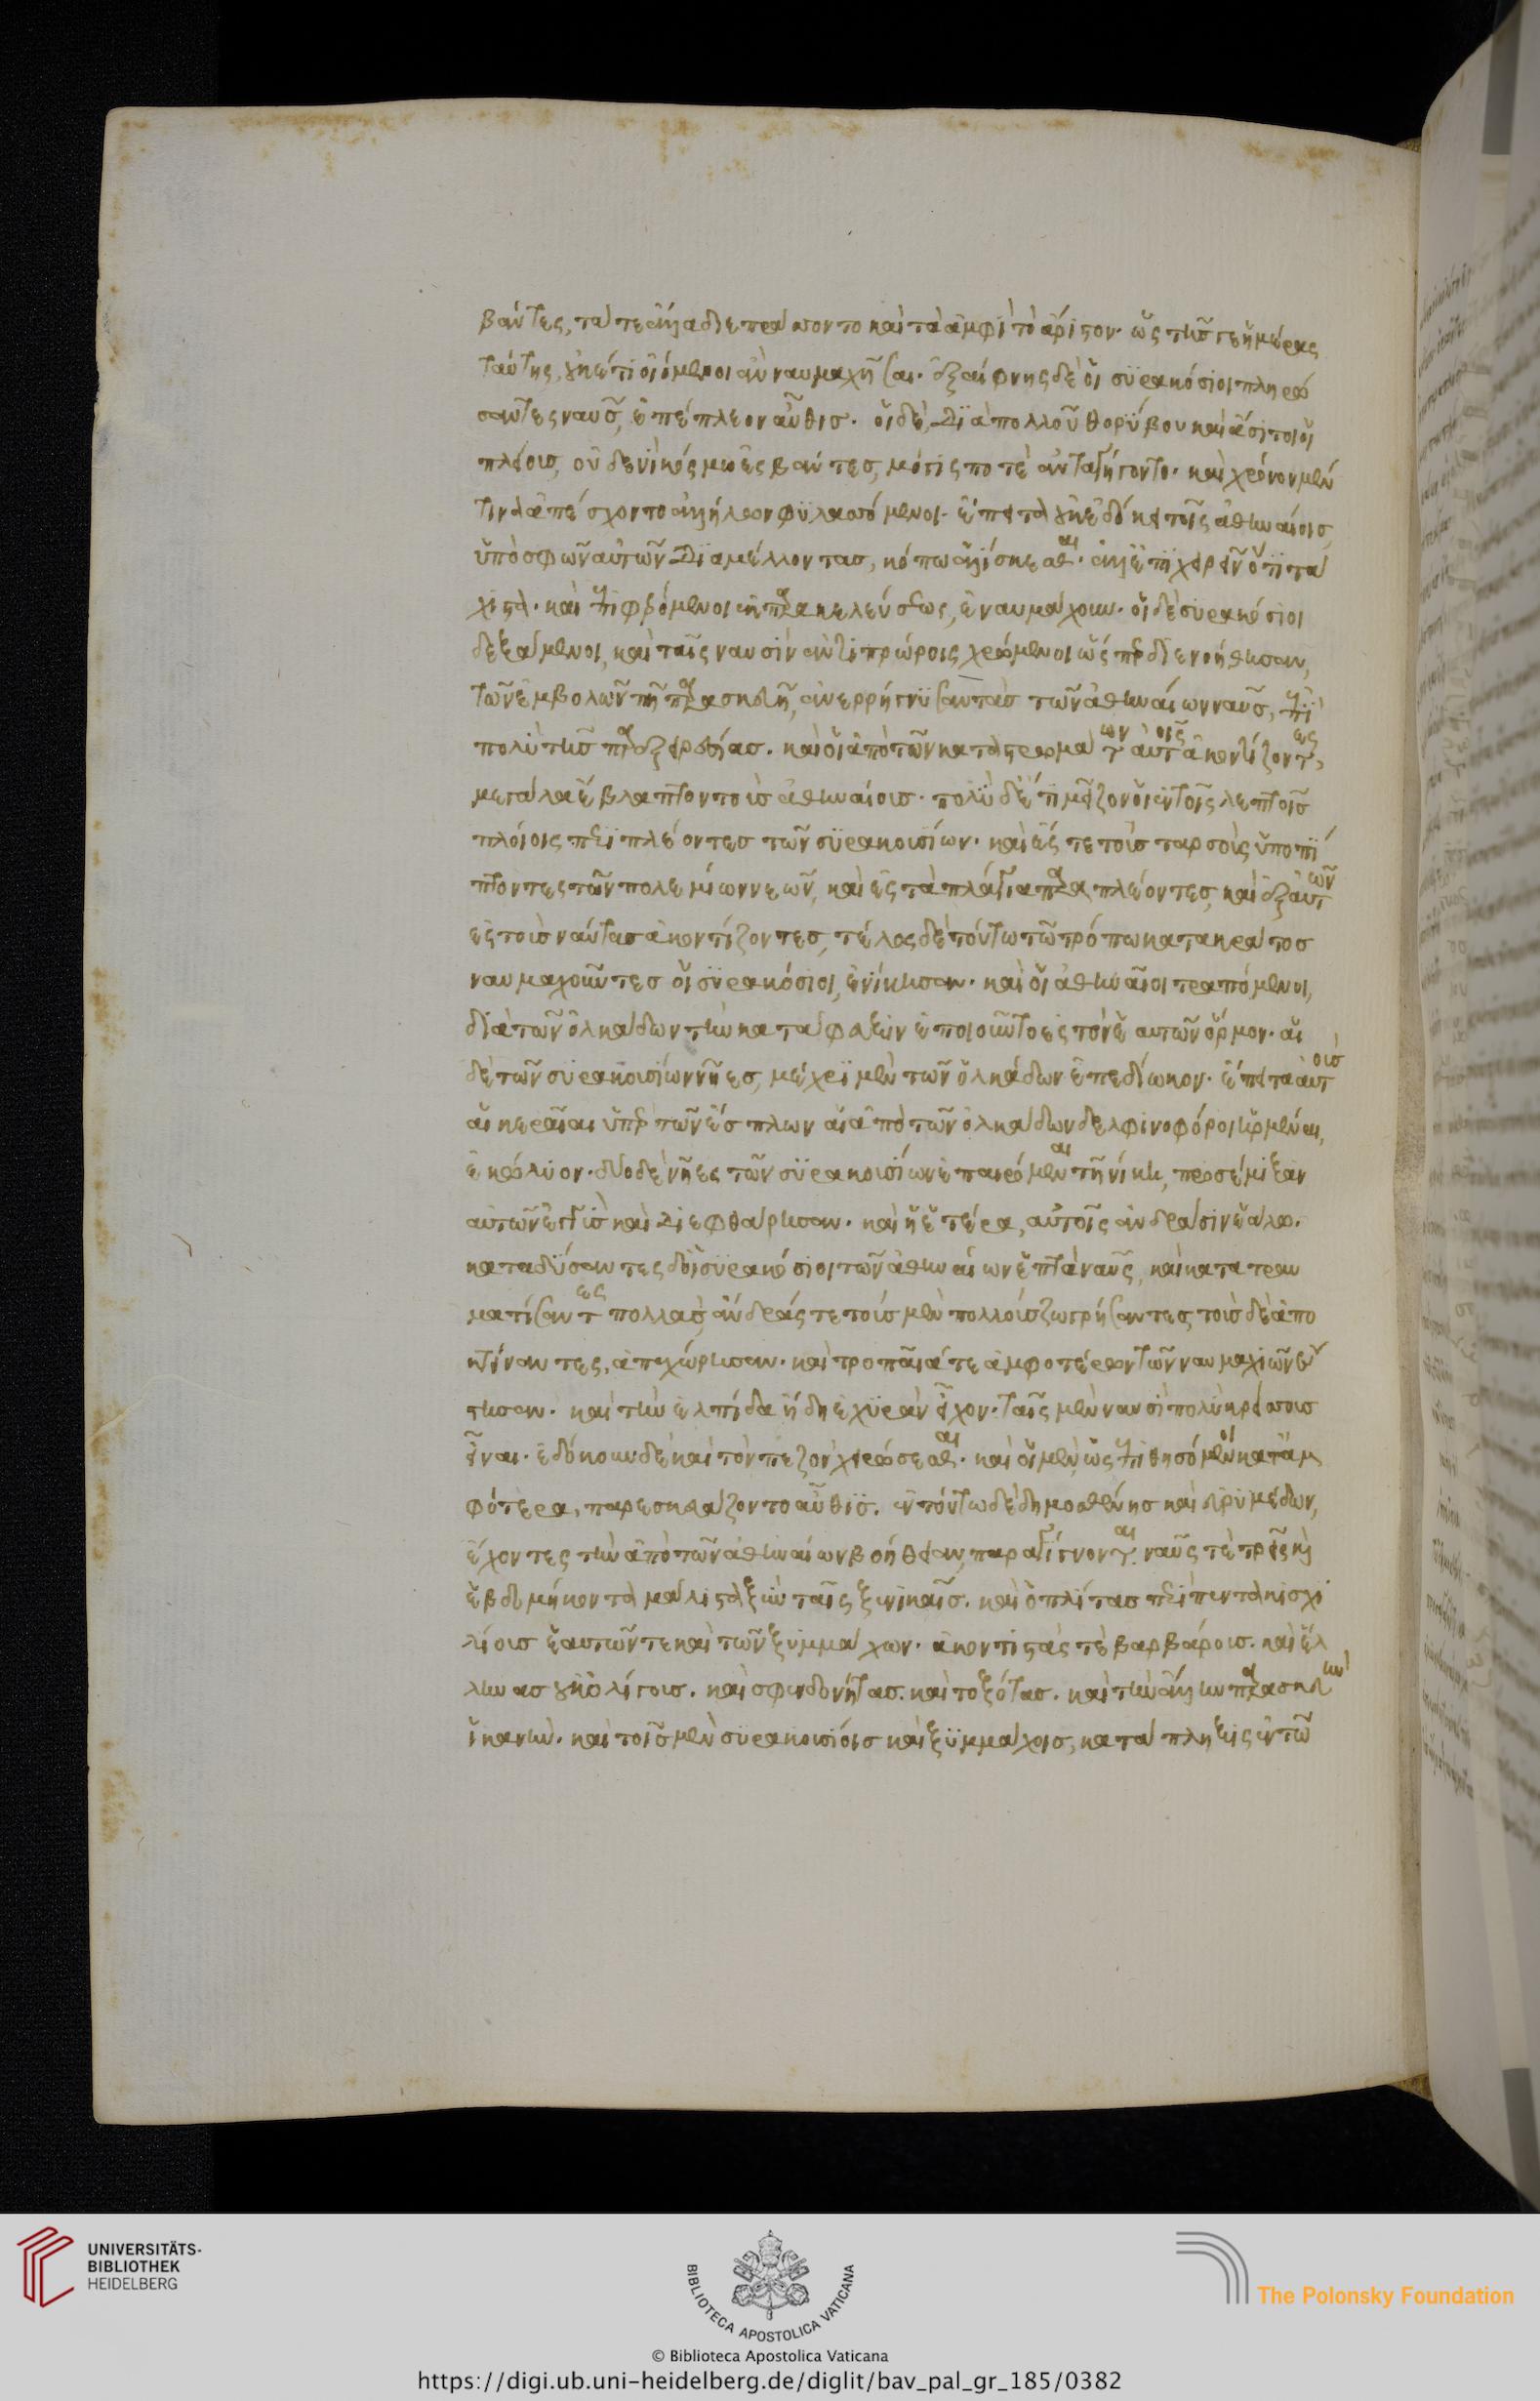 βάντες, τά τε ἄλλα διεπράσσοντο καὶ τὰ ἀμφὶ τὸ ἄριστον· ὡς τῆς γε ἡμέρας
ταύτης, οὐκέτι οἰόμενοι ἂν ναυμαχῆσαι. ἐξαίφνης δὲ οἱ συρακόσιοι πληρώ
σαντες ναῦς, ἐπέπλεον αὖθις. οἱ δὲ, διὰ πολλοῦ θορύβου καὶ ἄσιτοι οἱ
πλείους, οὐδενὶ κόσμω ἐσβάντες, μόγις ποτὲ ἀντανήγοντο. καὶ χρόνον μέν
τινα ἀπέσχοντο ἀλλήλων φυλασσόμενοι. ἔπειτα οὐκ ἐδόκει τοῖς ἀθηναίοις,
ὑπὸ σφῶν αὐτῶν διαμέλλοντας, κόπω ἁλίσκεσθαι. ἀλλ' ἐπιχειρεῖν ὅτι τά
χιστα. καὶ ἐπιφερόμενοι ἐκ παρακελεύσεως, ἐναυμάχουν. οἱ δὲ συρακόσιοι
δεξάμενοι, καὶ ταῖς ναυσὶν ἀντιπρώροις χρώμενοι ὥσπερ διενοήθησαν,
τῶν ἐμβολῶν τῆ παρασκευῆ, ἀνερρήγνυσαν τὰς τῶν ἀθηναίων ναῦς, ἐπὶ
πολὺ τῆς παρεξειρεσίας. καὶ οἱ ἀπὸ τῶν καταστρωμάτων αὐτοῖς ἀκοντίζοντες,
μεγάλα ἔβλαπτον τοὺς ἀθηναίους. πολὺ δ' ἔτι μεῖζον οἱ ἐν τοῖς λεπτοῖς
πλοίοις περιπλέοντες τῶν συρακουσίων. καὶ ἔς τε τοὺς ταρσοὺς ὑποπί
πτοντες τῶν πολεμίων νεῶν, καὶ ἐς τὰ πλάγια παραπλέοντες, καὶ ἐξ αὐτῶν
ἐς τοὺς ναύτας ἀκοντίζοντες, τέλος δὲ τούτω τῶ τρόπω κατακράτος
ναυμαχοῦντες οἱ συρακόσιοι, ἐνίκησαν. καὶ οἱ ἀθηναῖοι τραπόμενοι,
διὰ τῶν ὁλκάδων τὴν κατάφευξιν ἐποιοῦντο ἐς τὸν ἑαυτῶν ὅρμον. αἱ
δὲ τῶν συρακουσίων νῆες, μέχρι μὲν τῶν ὁλκάδων ἐπεδίωκον. ἔπειτα αὐτοὺς
αἱ κεραῖαι ὑπὲρ τῶν ἔσπλων αἱ ἀπὸ τῶν ὁλκάδων δελφινοφόροι ἠρμέναι,
ἐκώλυον. δύο δὲ νῆες τῶν συρακουσίων ἐπαιρόμεναι τῆ νίκη, προσέμιξαν
αὐτῶν ἐγγὺς καὶ διεφθάρησαν. καὶ ἡ ἑτέρα, αὐτοῖς ἀνδράσιν ἑάλω.
καταδύσαντες δ' οἱ συρακόσιοι τῶν ἀθηναίων ἑπτὰ ναῦς, καὶ κατατραυ
ματίσαντες πολλάς, ἄνδράς τε τοὺς μὲν πολλοὺς ζωγρήσαντες τοὺς δὲ ἀπο
κτείναντες, ἀπεχώρησαν. καὶ τροπαῖά τε ἀμφοτέρων τῶν ναυμαχιῶν ἔ
στησαν. καὶ τὴν ἐλπίδα ἤδη ἐχυρὰν εἶχον. ταῖς μὲν ναυσὶ πολὺ κρείσσους
εἶναι. ἐδόκουν δὲ καὶ τὸν πεζὸν χειρώσεσθαι. καὶ οἱ μὲν, ὡς ἐπιθησόμενοι κατ' ἀμ
φότερα, παρεσκευάζοντο αὖθις. ἐν τούτω δὲ δημοσθένης καὶ εὐρυμέδων,
ἔχοντες τὴν ἀπὸ τῶν ἀθηναίων βοήθειαν, παραγίγνονται. ναῦς τὲ τρεῖς καὶ
ἑβδομήκοντα μάλιστα ξὺν ταῖς ξενικαῖς. καὶ ὁπλίτας περὶ πεντακισχι
λίους ἑαυτῶν τε καὶ τῶν ξυμμάχων. ἀκοντιστάς τὲ βαρβάρους. καὶ ἕλ
ληνας οὐκ ὀλίγους. καὶ σφενδονήτας. καὶ τοξότας. καὶ τὴν ἄλλην παρασκευὴν
ἱκανήν. καὶ τοῖς μὲν συρακουσίοις καὶ ξυμμάχοις, κατάπληξις ἐν τῶ
UNIVERSITÄTS-
BIBLIOTHEK
HEIDELBERG
BIBLIOTECA APOSTOLICA VATICANA
The Polonsky Foundation
© Biblioteca Apostolica Vaticana
https://digi.ub.uni-heidelberg.de/diglit/bav_pal_gr_185/0382